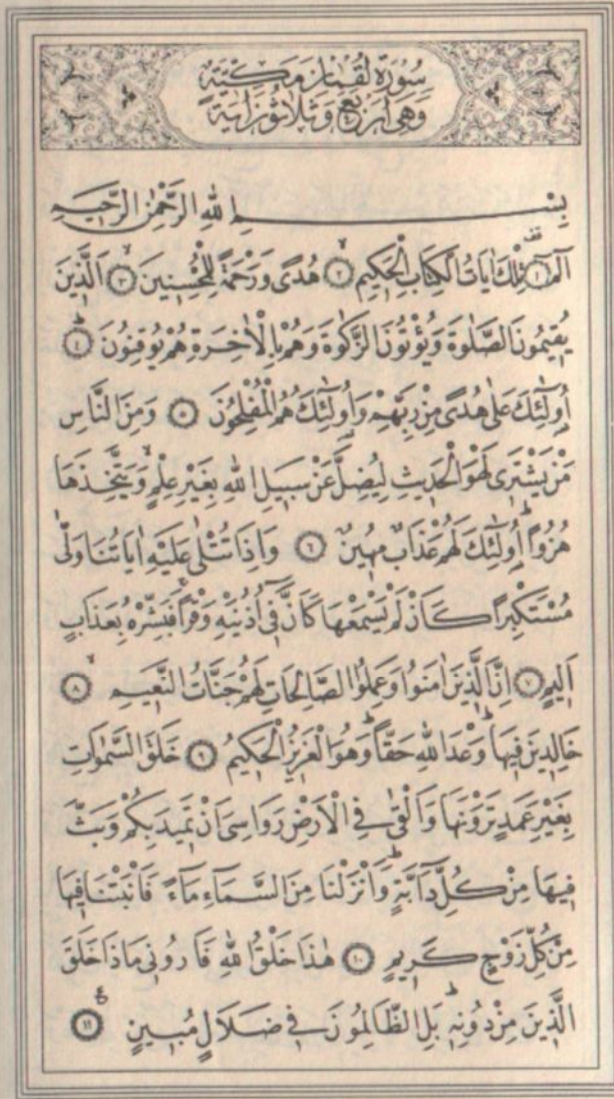 سُورَةُ لُقْمٰانَ مَكِّيَّةٌ
وَهِىَ اَرْبَعٌ وَثَلَاثُونَ اٰيَةً
بِسْمِ اللّٰهِ الرَّحْمٰنِ الرَّحِيمِ
الٓمٓ ﴿١﴾ تِلْكَ اٰيَاتُ الْكِتَابِ الْحَكِيمِ ﴿٢﴾ هُدًى وَرَحْمَةً لِلْمُحْسِنِينَ ﴿٣﴾ اَلَّذِينَ
يُقِيمُونَ الصَّلٰوةَ وَيُؤْتُونَ الزَّكٰوةَ وَهُمْ بِالْاٰخِرَةِ هُمْ يُوقِنُونَ ﴿٤﴾
اُولٰٓئِكَ عَلٰى هُدًى مِنْ رَبِّهِمْ وَاُولٰٓئِكَ هُمُ الْمُفْلِحُونَ ﴿٥﴾ وَمِنَ النَّاسِ
مَنْ يَشْتَرِى لَهْوَ الْحَدِيثِ لِيُضِلَّ عَنْ سَبِيلِ اللّٰهِ بِغَيْرِ عِلْمٍۙ وَيَتَّخِذَهَا
هُزُوًاۜ اُولٰٓئِكَ لَهُمْ عَذَابٌ مُهِينٌ ﴿٦﴾ وَاِذَا تُتْلٰى عَلَيْهِ اٰيَاتُنَا وَلّٰى
مُسْتَكْبِرًا كَاَنْ لَمْ يَسْمَعْهَا كَاَنَّ فِٓى اُذُنَيْهِ وَقْرًاۚ فَبَشِّرْهُ بِعَذَابٍ
اَلِيمٍ ﴿٧﴾ اِنَّ الَّذِينَ اٰمَنُوا وَعَمِلُوا الصَّالِحَاتِ لَهُمْ جَنَّاتُ النَّعِيمِۙ ﴿٨﴾
خَالِدِينَ فِيهَاۜ وَعْدَ اللّٰهِ حَقًّاۜ وَهُوَ الْعَزِيزُ الْحَكِيمُ ﴿٩﴾ خَلَقَ السَّمٰوَاتِ
بِغَيْرِ عَمَدٍ تَرَوْنَهَا وَاَلْقٰى فِى الْاَرْضِ رَوَاسِىَ اَنْ تَمِيدَ بِكُمْ وَبَثَّ
فِيهَا مِنْ كُلِّ دَٓابَّةٍۜ وَاَنْزَلْنَا مِنَ السَّمَٓاءِ مَٓاءً فَاَنْبَتْنَا فِيهَا
مِنْ كُلِّ زَوْجٍ كَرِيمٍ ﴿١٠﴾ هٰذَا خَلْقُ اللّٰهِ فَاَرُونِى مَاذَا خَلَقَ
الَّذِينَ مِنْ دُونِهِۜ بَلِ الظَّالِمُونَ فِى ضَلَالٍ مُبِينٍ ﴿١١﴾ ع